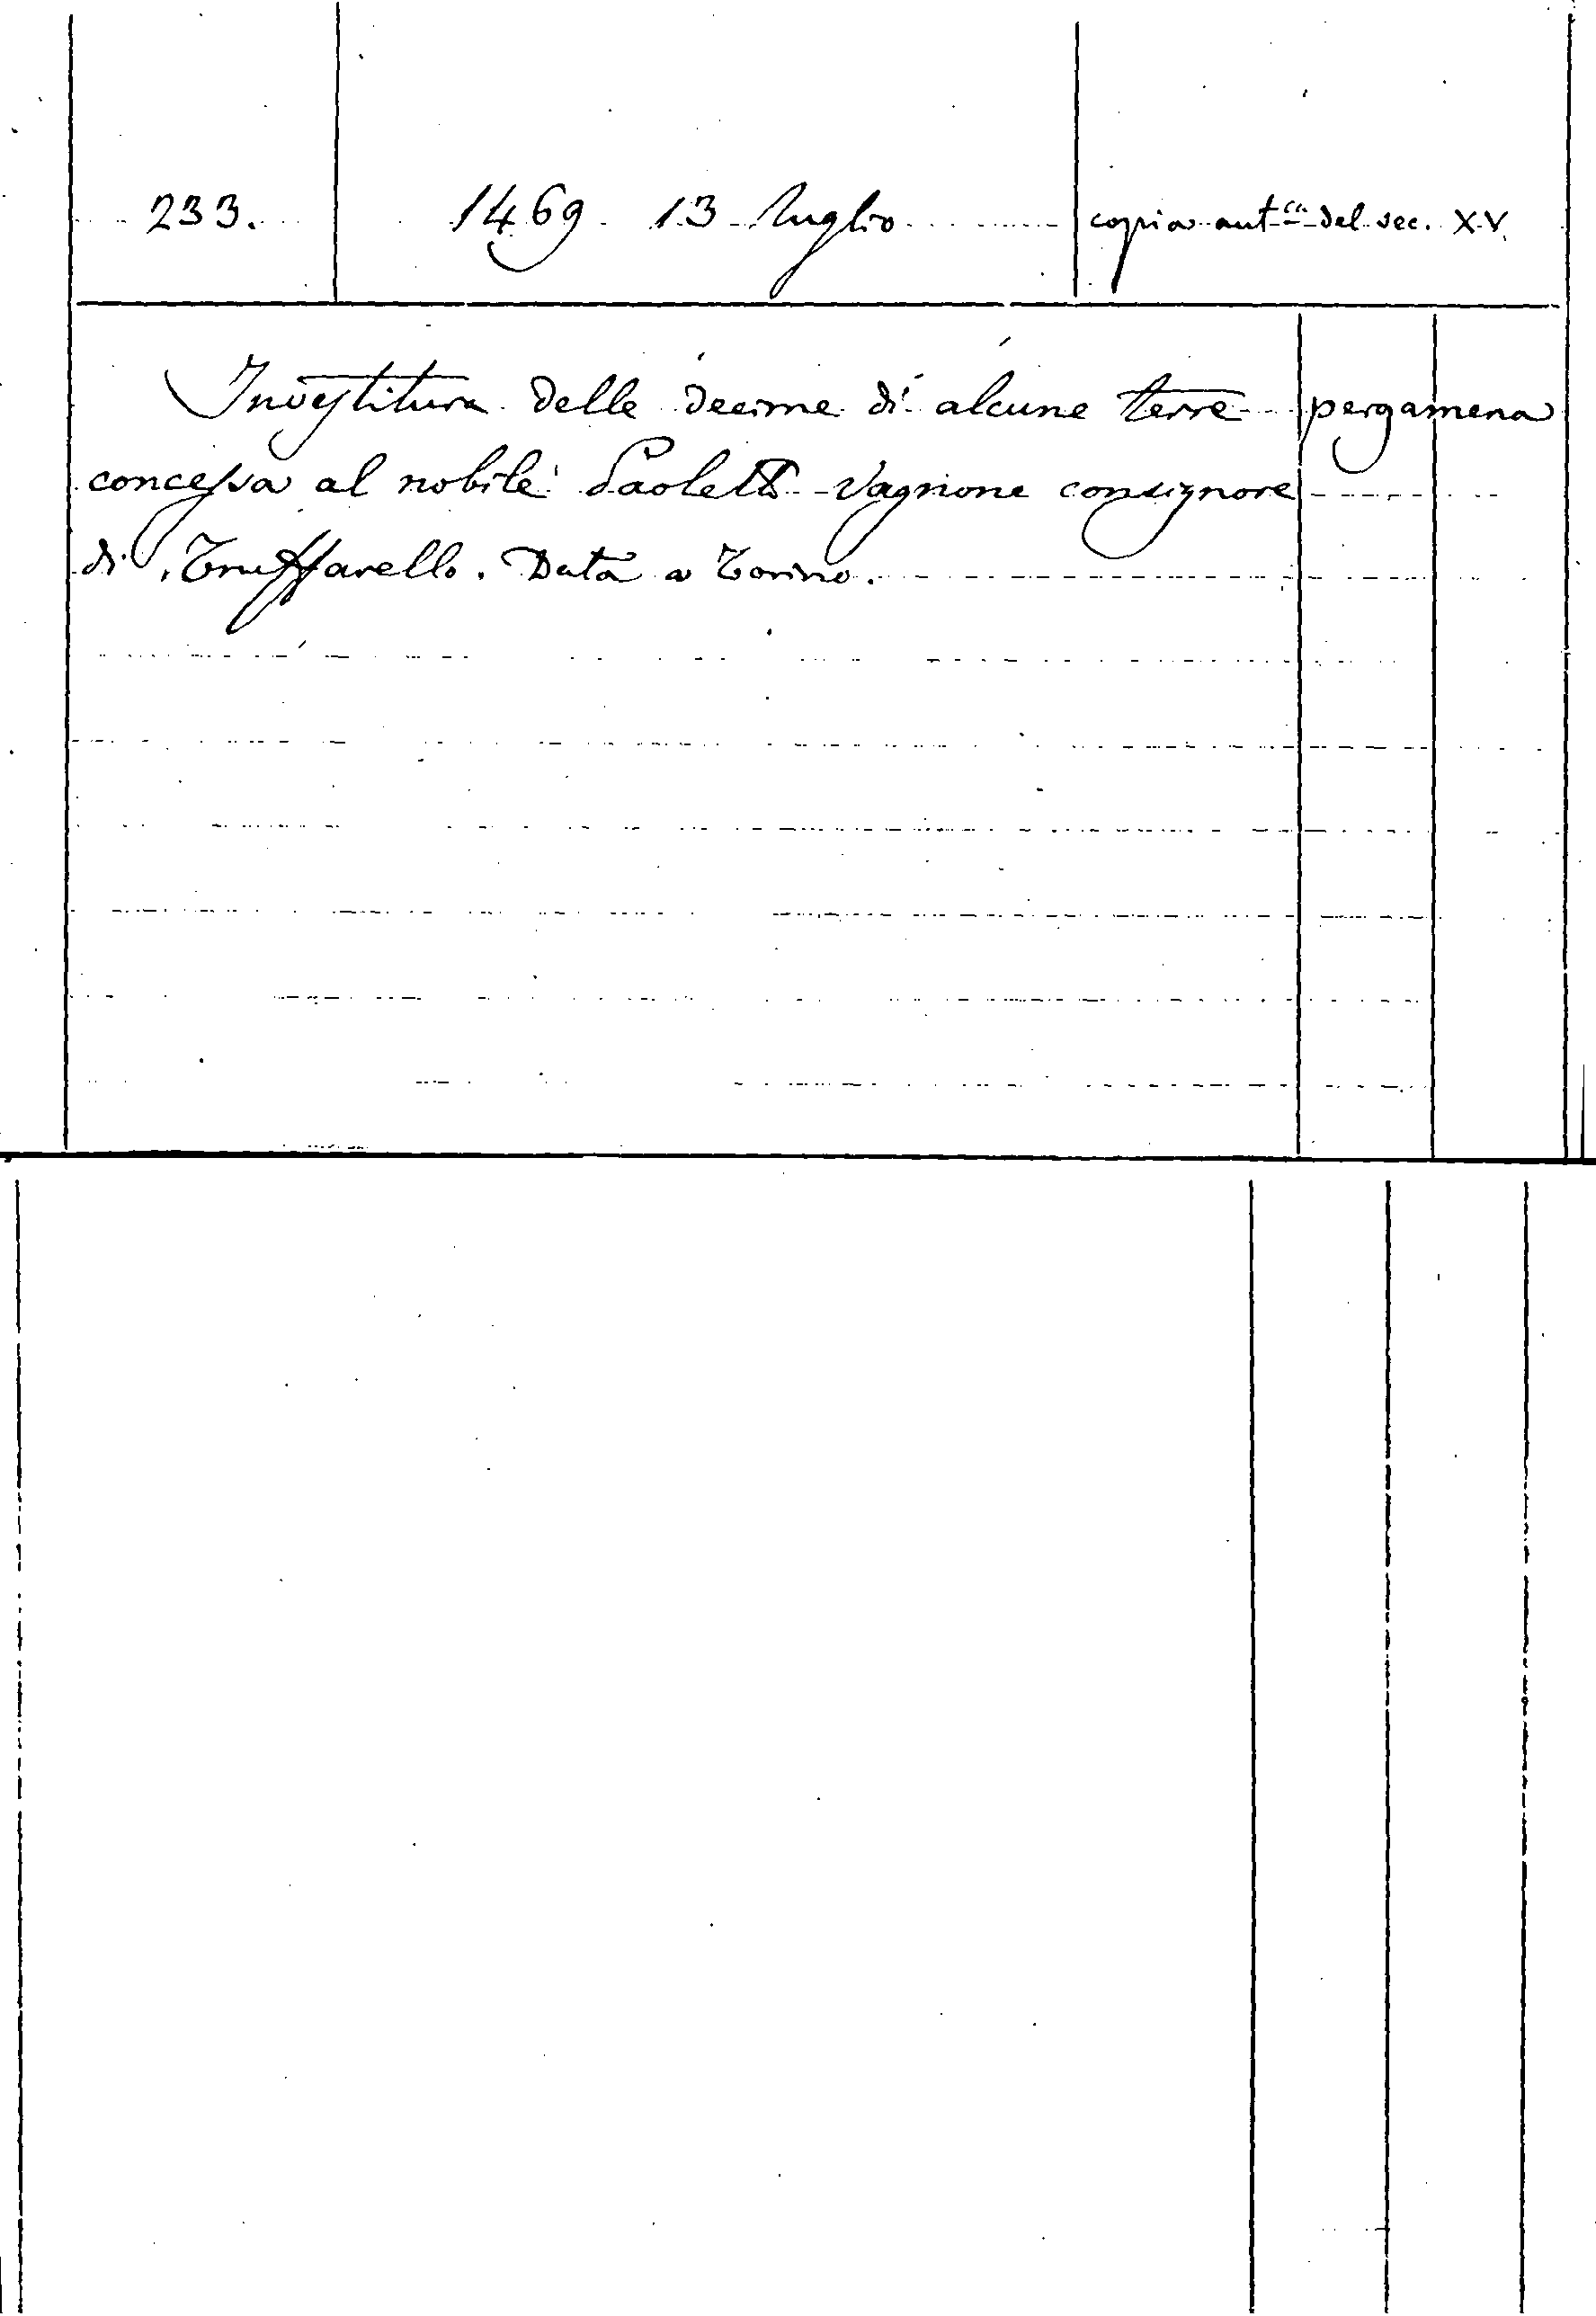 233. 1469 13 luglio copia aut.ca del sec. XV.
Investitura delle decime di alcune terre pergamena
concessa al nobile Paoletto Vagnone consignore
di Truffarello. Data a Torino.